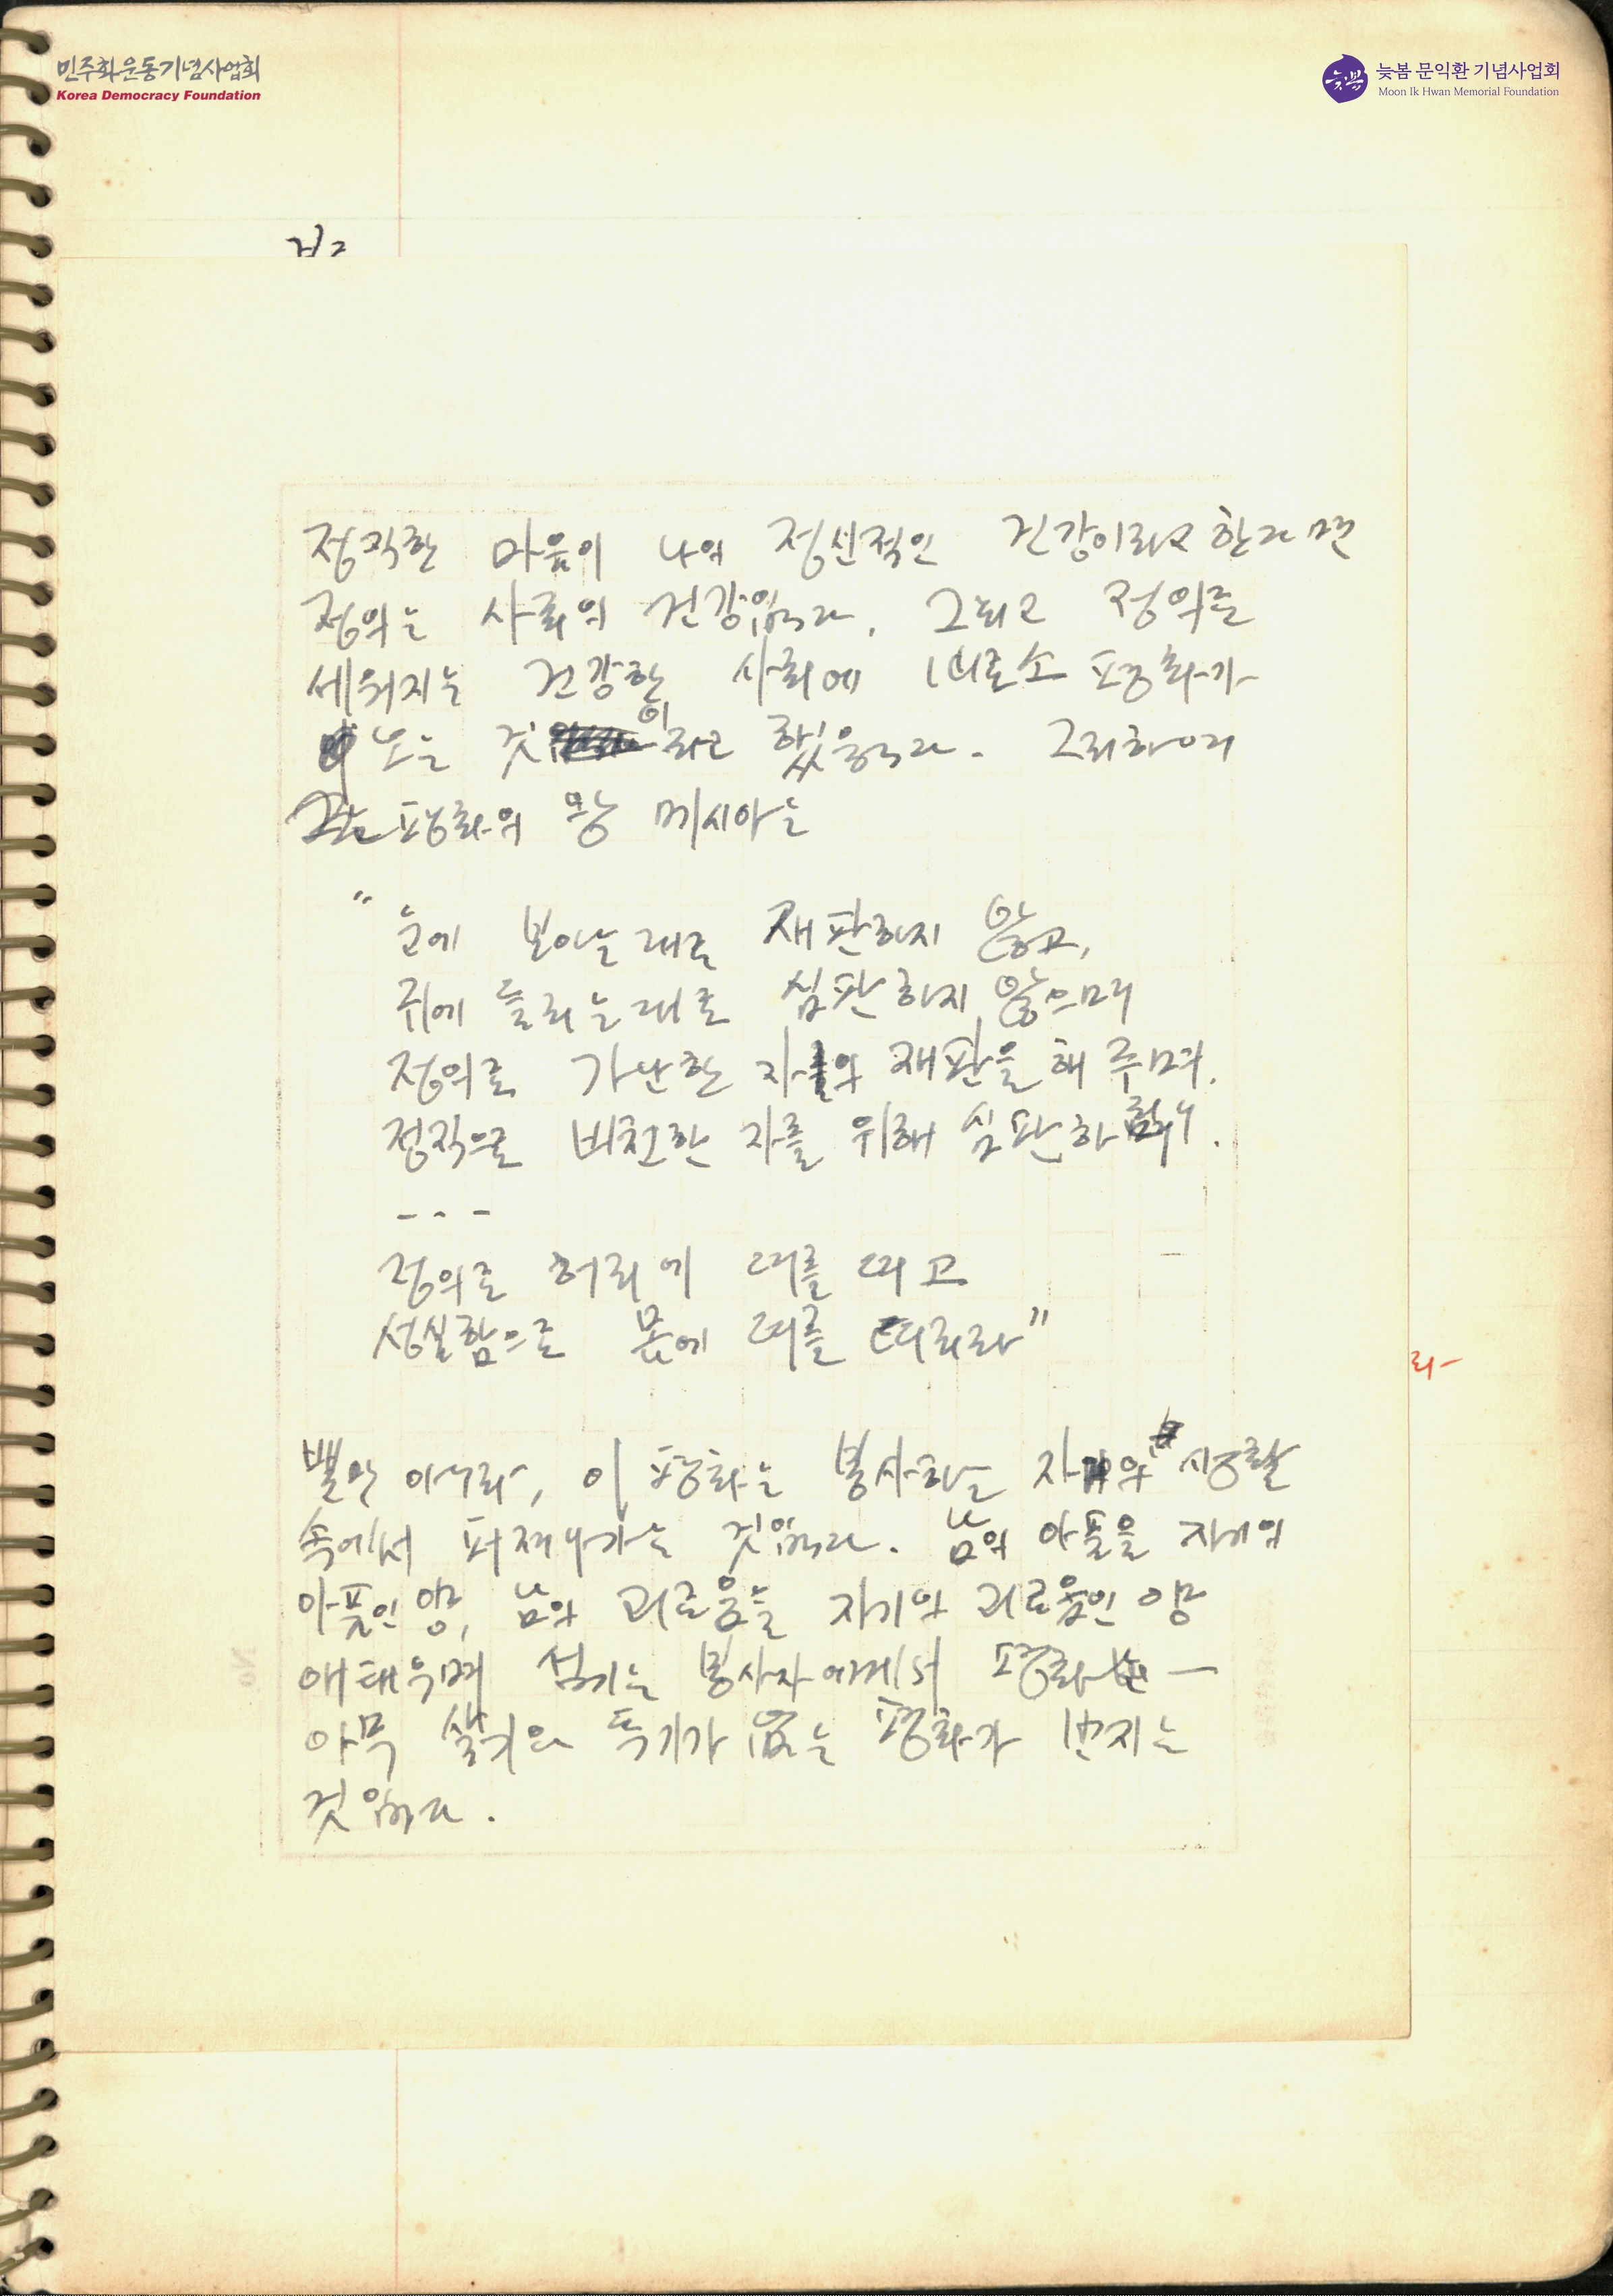 민주화운동기념사업회
Korea Democracy Foundation
늦봄 문익환 기념사업회
Moon Ik Hwan Memorial Foundation
정직한 마음이 나의 정신적인 건강이라고 한다면
정의는 사회의 건강입니다. 그리고 정의로
세워지는 건강한 사회에 비로소 평화가
오는 것이라고 했읍니다. 그리하여
평화의 왕 메시아는
"눈에 보이는 대로 재판하지 않고,
귀에 들리는 대로 심판하지 않으며
정의로 가난한 자의 재판을 해 주며.
정직으로 비천한 자를 위해 심판하
- - -
정의로 허리에 띠를 띠고
성실함으로 몸에 띠를 띠리라"
뿐만 아니라, 이 평화는 봉사하는 자의 생활
속에서 퍼져나가는 것입니다. 남의 아픔을 자기의
아픔인 양, 남의 괴로움을 자기의 괴로움인 양
애태우며 섬기는 봉사자에게서 평화 —
아무 살기와 독기가 없는 평화가 번지는
것입니다.
라